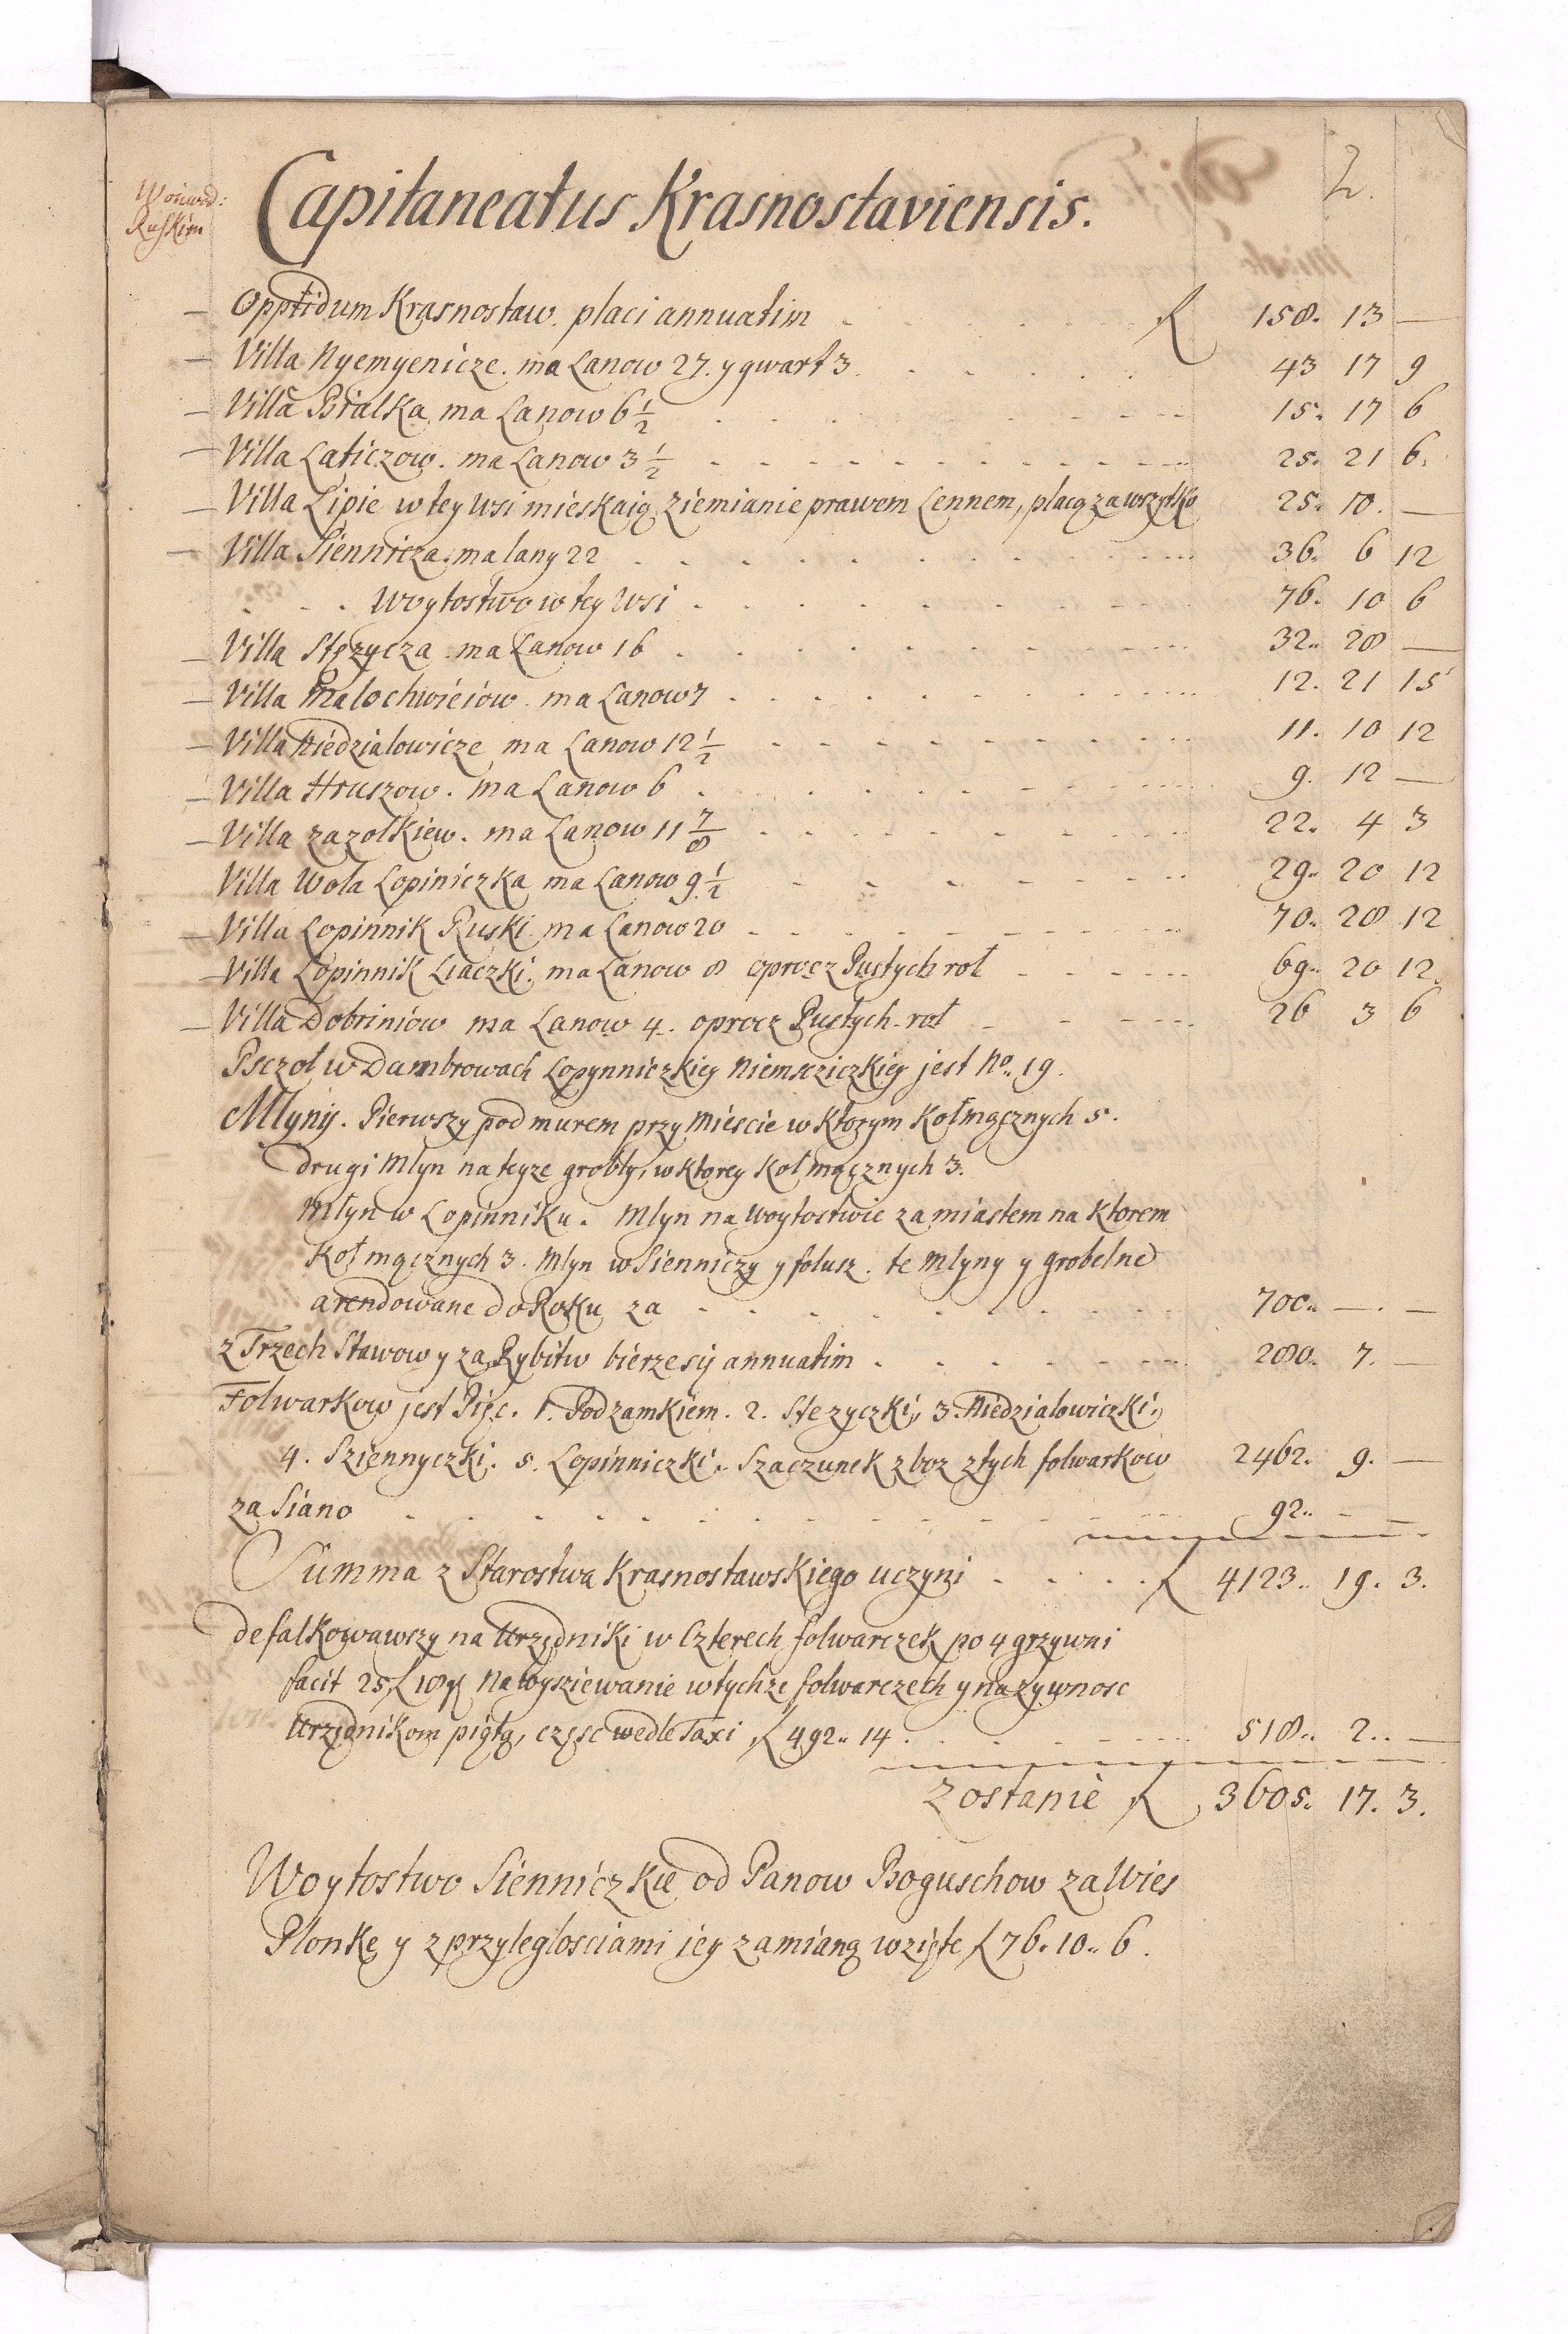 2.
Woiewod:
Ruskim
Capitaneatus Krasnostaviensis.
— Oppidum Krasnostaw. placi annuatim . . . . . . . f 158. 13 —
— Villa Nyemyenicze. ma Lanow 27. y qwart 3. . . . . . . 43 17 9
— Villa Bialka ma Lanow 6 1/2 . . . . . . . 15. 17 6
— Villa Laticzow. ma Lanow 3 1/2 - - - - - - - 25. 21 6.
— Villa Lipie w tey wsi mieskaią Ziemianie prawem Lennem, placą za wszytko 25. 10. —
— Villa Siennicza. ma lany 22 . . . . . . . 36. 6 12
. . . Woytostwo w tey Wsi . . . . . . . 76. 10 6
— Villa Stęzycza. ma Lanow 16 . . . . . . . 32.. 28 —
— Villa Malochwieiow. ma Lanow 7 . . . . . . . 12. 21 15
— Villa Niedzialowicze ma Lanow 12 1/2 - - - - - - - 11. 10 12
— Villa Hruszow. ma Lanow 6 . . . . . . . 9. 12 —
— Villa zazolkiew. ma Lanow 11 7/8 - - - - - - - 22. 4 3
Villa Wola Lopiniczka ma Lanow 9 1/2 - - - - - - - 29.. 20 12
— Villa Lopinnik Ruski ma Lanow 20 - - - - - - - 70.. 28 12
— Villa Lopinnik Liaczki. ma Lanow 8 oprocz Pustych rol - - - - - 69.. 20 12.
— Villa Dobriniow ma Lanow 4. oprocz Pustych rol - - - - 26 3 6
Psczol w Dambrowach Lopynniczkiey Niemsziczkiey jest No. 19.
Mlyny. Pierwszy pod murem przy Miescie w Ktorym Kol mącznych 5.
drugi Mlyn na teyze grobly, w Ktorey Kol mącznych 3.
Mlyn w Lopinniku. Mlyn na Woytostwie za miastem na Ktorem
Kol mącznych 3. Mlyn w Sienniczy y folusz. te Mlyny y grobelne
arendowane do Roku za . . . . . . . 700.. — . —
z Trzech Stawow y za Rybitw bierze sij annuatim . . . . . . . 280. 7. —
Folwarkow jest Pięc. 1. Podzamkiem. 2. Stezyczki, 3. Niedzialowiczki,
4. Sziennyczki. 5. Lopinniczki. Szaczunek zboz z tych folwarkow 2462. 9. —
za Siano . . . . . . . 92.. — —
Summa z Starostwa Krasnostawskiego uczyni . . . . . f 4123.. 19. 3.
defalkowawszy na Urzędniki w Czterech folwarczek po 4 grzywni
facit 25 f 18 gl Na wysziewanie w tychze folwarczech y na zywnosc
Urzędnikom piątą, częsc wedle Taxi f 492.. 14 . . . . . . . 518.. 2.. —
Zostanie f 3605. 17. 3.
Woytostwo Sienniczkie od Panow Boguschow za Wies
Plonkę y z przyleglosciami iey zamianą wzięte f 76. 10.. 6.